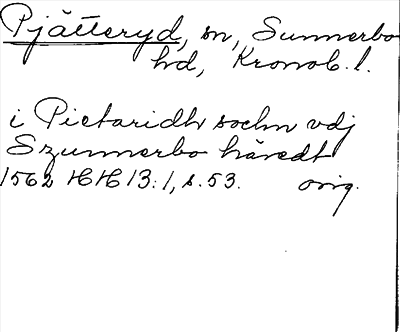 Pjätteryd, sn, Sunnerbo
hd, Kronob. l.
i Pietaridh sochn vdj
Szunnerbo häredt
1562 HH 13:1, s. 53. orig.